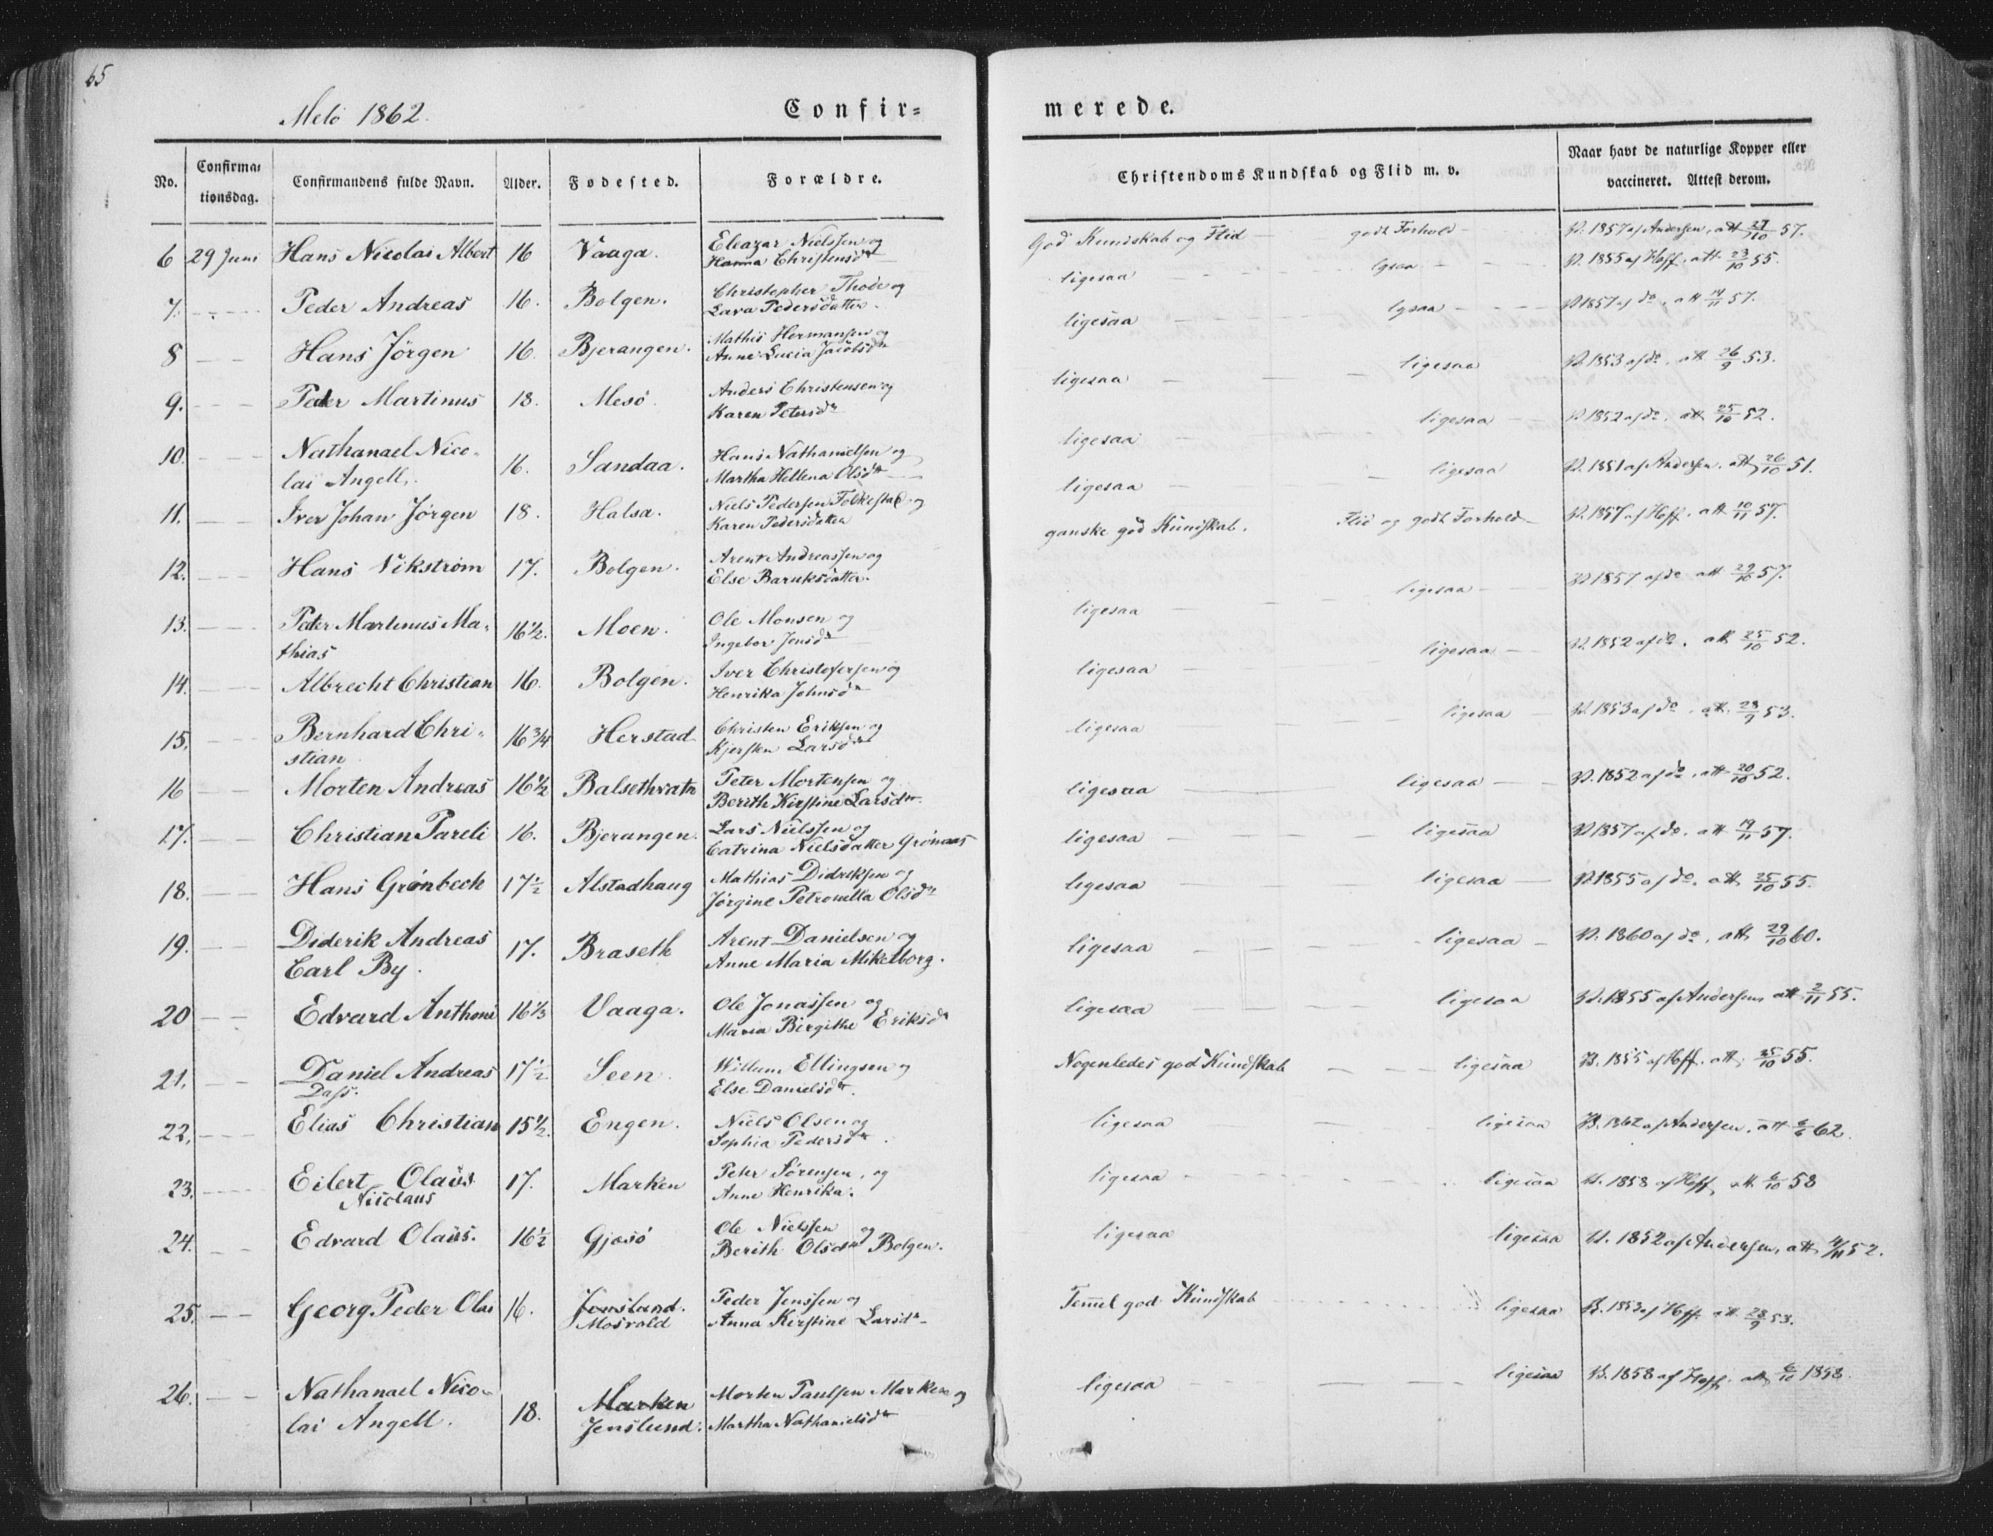 65
Melö 1862.
Confir=
merede.
No.
Confirma=
tionsdag.
Confirmandens fulde Navn.
Alder.
Fødested.
Forældre.
Christendoms Kundskab og Flid m. v.
Naar havt de naturlige Kopper eller
vaccineret. Attest derom.
6 29 Juni Hans Nicolai Albert 16 Vaaga. Eleazar Nielssen og
Hanna Christensdr
God Kundskab og Flid — godt Forhold — V. 1857 af Andersen, att 27/10 57.
7. Peder Andreas 16. Bolgen. Christopher Thode og
Lava Pedersdatter.
ligesaa — lgsaa — V. 1855 af Hoff. att 23/10 55.
8 Hans Jörgen 16. Bjerangen. Mathis Hermansen og
Anne Lucia Jacobsdr
ligesaa lgsaa V. 1857 af do, att 19/11 57.
9. Peder Martinus 18. Mesö. Anders Christensen og
Karen Petersdr
ligesaa — ligesaa V. 1853 af do. att 26/9 53.
10. Nathanael Nico-
lai Angell. 16. Sandaa. Hans Nathanielsen og
Martha Hellena Olsdr
ligesaa — ligesaa V. 1852 af do. att 25/10 52.
11. Iver Johan Jörgen 18. Halsa. Niels Pedersen Folkestad og
Karen Pedersdatter
ligesaa — ligesaa V. 1851 af Andersen. att 26/10 51.
12. Hans Vikström 17. Bolgen. Arent Andreassen og
Else Baruksdatter.
ganske god Kundskab. Flid og godt Forhold — V. 1857 af Hoff. att 10/11 57.
13. Peter Martinus Ma-
thias 16 1/2. Moen. Ole Monsen og
Ingebor Jensdr
ligesaa — ligesaa — V. 1857 af do att 29/10 57.
14. Albrecht Christian 16. Bolgen. Iver Christofersen og
Henrika Johnsdr
ligesaa — ligesaa — V. 1852 af do. att 25/10 52.
15. Bernhard Chri-
stian. 16 3/4 Herstad Christen Eriksen og
Kjersten Larsdr
ligesaa ligesaa V. 1853 af do. att. 28/9 53.
16 Morten Andreas 16 1/2 Balsethvatn Peter Mortensen og
Berith Kirstine Larsdr.
ligesaa — ligesaa — V. 1852 af do. att 20/10 52.
17. Christian Pareli 16. Bjerangen. Lars Nielssen og
Catrina Nielsdatter Grönaas
ligesaa — ligesaa V. 1857 af do. att 19/11 57.
18. Hans Grönbech 17 1/2 Alstadhaug Mathias Didriksen og
Jörgine Petronella Olsdr
ligesaa — ligesaa — V. 1855 af do. att 25/10 55.
19. Diderik Andreas
Carl By. 17. Braseth Arent Danielsen og
Anne Maria Mikelborg.
ligesaa — ligesaa — V. 1860 af do. att 29/10 60.
20 Edvard Anthoni 16 1/3 Vaaga. Ole Jonassen og
Maria Birgithe Eriksdr
ligesaa — ligesaa V. 1855 af Andersen att 2/11 55.
21. Daniel Andreas
Dass. 17 1/2 Seen. Willum Ellingsen og
Else Danielsdr.
Nogenledes god Kundskab — ligesaa V. 1855 af Hoff. att 25/10 55.
22. Elias Christian 15 1/2. Engen. Niels Olsen og
Sophia Pedersdr.
ligesaa — ligesaa V. 1862 af Andersen. att 6/6 62.
23. Eilert Olaüs
Nicolaus 17. Marken Peter Sörensen, og
Anne Henrika.
ligesaa ligesaa V. 1858 af Hoff, att. 6/10 58
24. Edvard Olaüs. 16 1/2 Gjesö Ole Nielssen og
Berith Olsdr Bolgen.
ligesaa ligesaa V. 1852 af Andersen, att 4/11 52.
25. Georg Peder Olai 16. Jenslund.
Mosvold Peder Jenssen og
Anna Kirstine Larsdr
Temmel god Kundskab ligesaa V. 1853 af Hoff. att 28/9 53.
26. Nathanael Nico-
lai Angell. 18. Marken
Jenslund. Morten Paulsen Marken og
Martha Nathanielsdr
ligesaa — ligesaa V. 1858 af Hoff. att 6/10 1858.